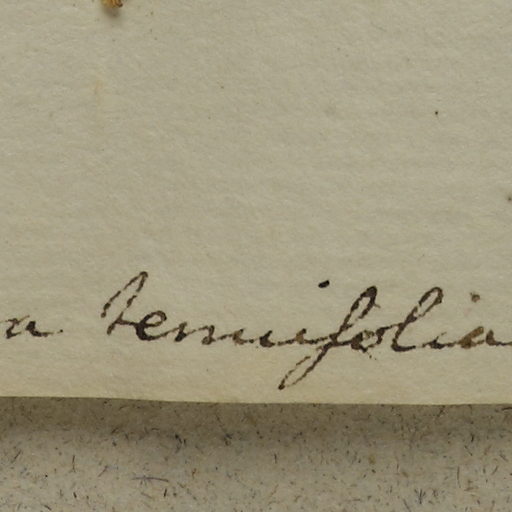 a tenuifolia